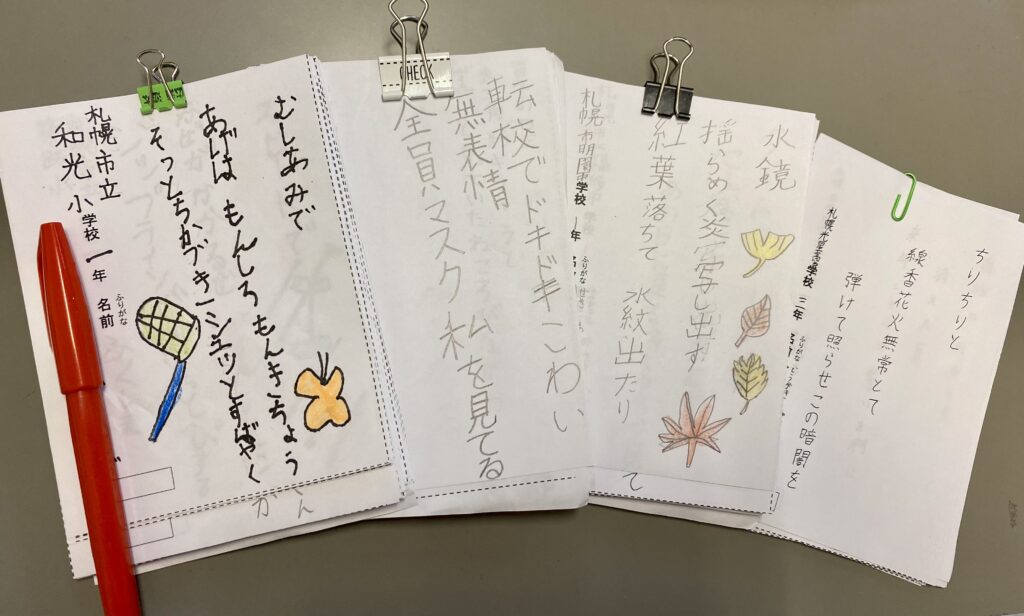 むしあみで
あげは もんしろ もんきちょう
そっとちかづき シュッとすばやく
札幌市立
和光小学校 一年 ふりがな 名前
CHECK
転校でドキドキこわい
無表情
全員マスク 私を見てる
水鏡
揺らめく炎写し出す
紅葉落ちて 水紋出たり
札幌市 学校 年
ちりちりと
線香花火無常とて
弾けて照らせこの暗闇を
札幌光星高等学校 三年 ふりがな